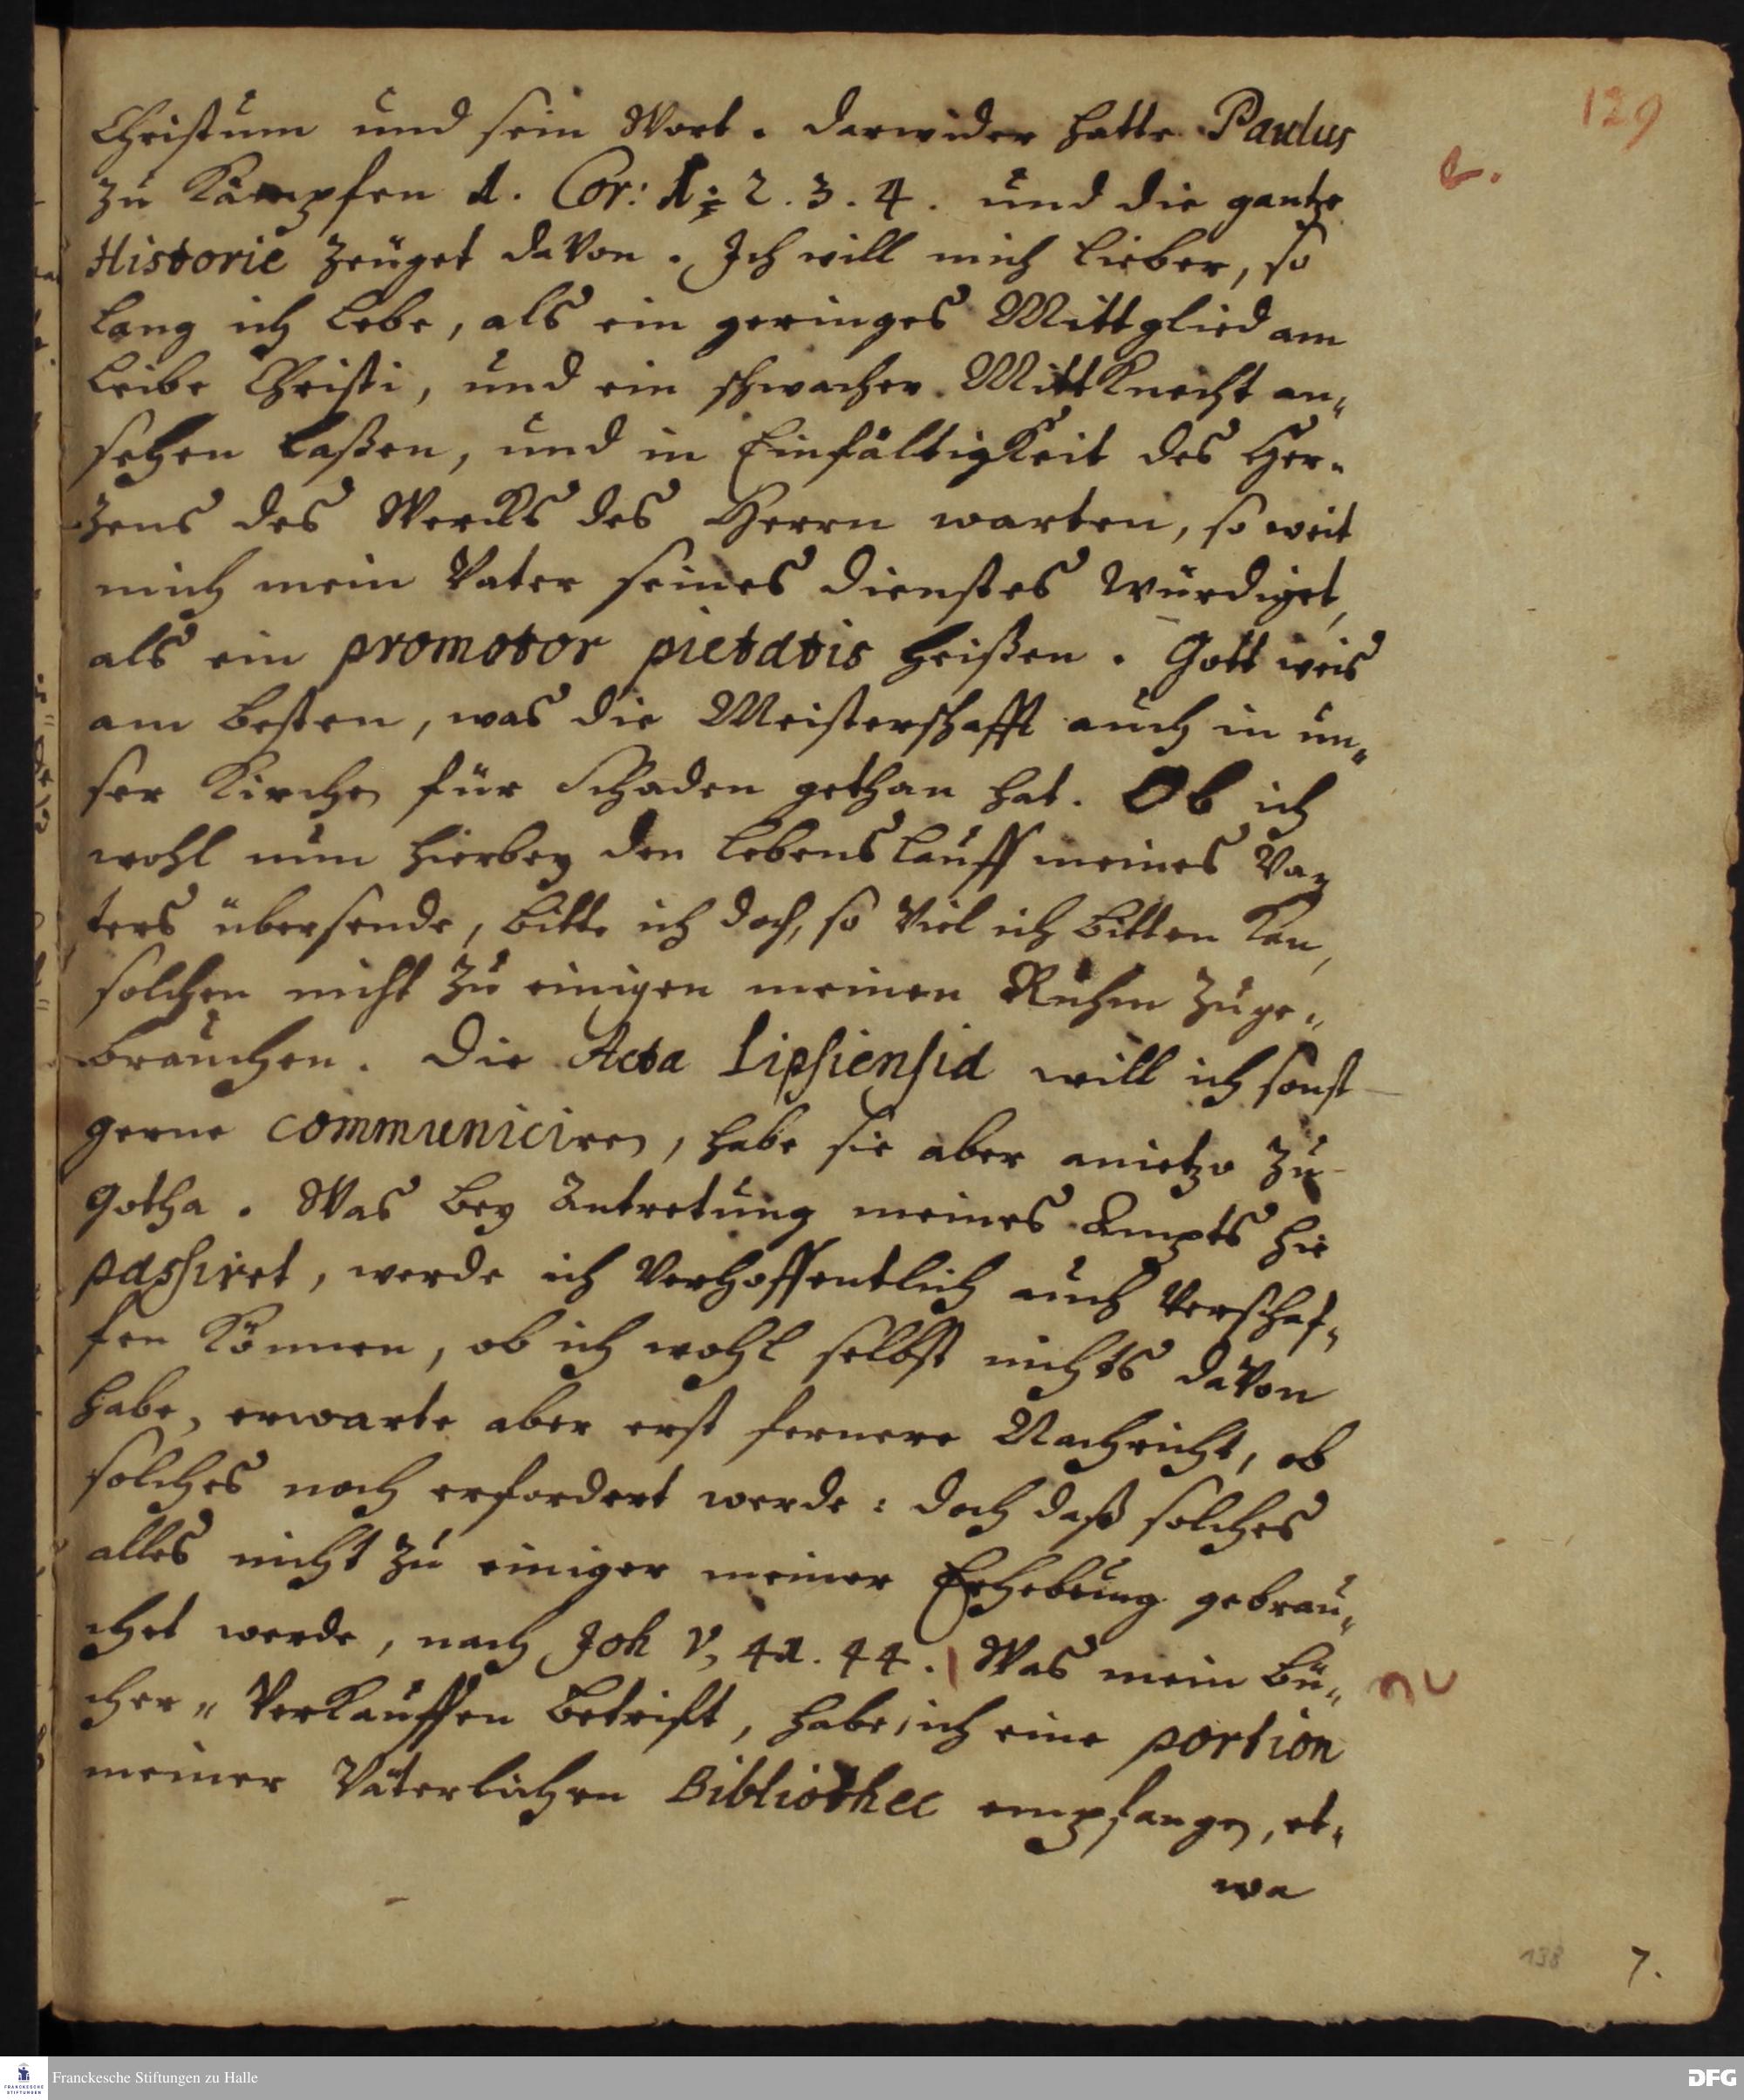 129
Christum und sein Wort. Darwider hatte Paulus
zu Kämpfen 1. Cor: 1; 2. 3. 4. und die gantze
Historie zeüget davon. Ich will mich lieber, so
lang ich lebe, als ein geringes Mittglied am
Leibe Christi, und ein schwacher MittKnecht an„
sehen laßen, und in EinfältigKeit des Her„
zens des Wercks des Herrn warten, so weit
mich mein Vater seines Dienstes würdiget,
als ein promotor pietatis heißen. Gott weis
am besten, was die Meisterschafft auch in un„
ser Kirche für Schaden gethan hat. Ob ich
wohl nun hierbey den Lebenslauff meines Va„
ters übersende, bitte ich doch, so viel ich bitten Kan,
solchen nicht zu einigen meinen Ruhm zu ge„
brauchen. Die Acta Lipsiensia will ich sonst
gerne communiciren, habe sie aber anietzo zu
Gotha. Was bey Antretung meines Ampts hie
passiret, werde ich verhoffentlich auch verschaf„
fen Können, ob ich wohl selbst nichts davon
habe, erwarte aber erst fernere Nachricht, ob
solches noch erfordert werde: doch daß solches
alles nicht zu einiger meiner Erhebung gebrau„
chet werde, nach Joh V, 41. 44. Was mein Bü„
cher„ Verkauffen betrift, habe ich eine portion
meiner Väterlichen Bibliothec empfangen, et„
wa
138
7.
Franckesche Stiftungen zu Halle
DFG